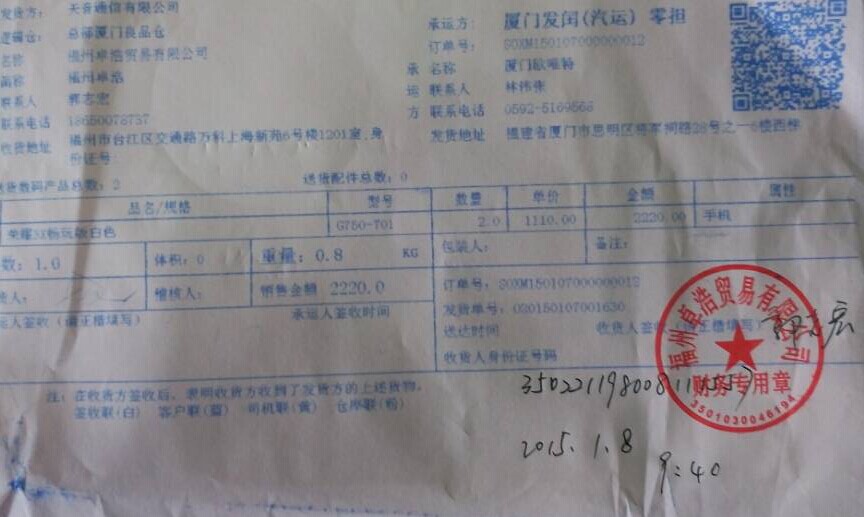 发货方： 天音通信有限公司
逻辑仓： 总部厦门良品仓
名称 福州卓浩贸易有限公司
简称 福州卓浩
联系人 郭志宏
联系电话 18650078737
收货地址 福州市台江区交通路万科上海新苑6号楼1201室,身
份证号：
承运方： 厦门发闰(汽运) 零担
订单号： SOXM150107000000012
承 名称 厦门欧唯特
运 联系人 林伟张
方 联系电话 0592-5169568
发货地址 福建省厦门市思明区将军祠路28号之一6楼西梯
送货数码产品总数：2 送货配件总数：0
品名/规格 型号 数量 单价 金额 属性
荣耀3X畅玩版白色 G750-T01 2.0 1110.00 2220.00 手机
数：1.0 体积：0 重量：0.8 KG 包装人： 备注：
货人： 稽核人： 销售金额 2220.0
运人签收（请正楷填写） 承运人签收时间
订单号：SOXM150107000000012
发货单号：020150107001630
送达时间 收货人签收（请正楷填写）
收货人身份证号码
注：在收货方签收后，表明收货方收到了发货方的上述货物。
签收联(白) 客户联(蓝) 司机联(黄) 仓库联(粉)
福州卓浩贸易有限公司
财务专用章
3501030046194
2015.1.8
9:40